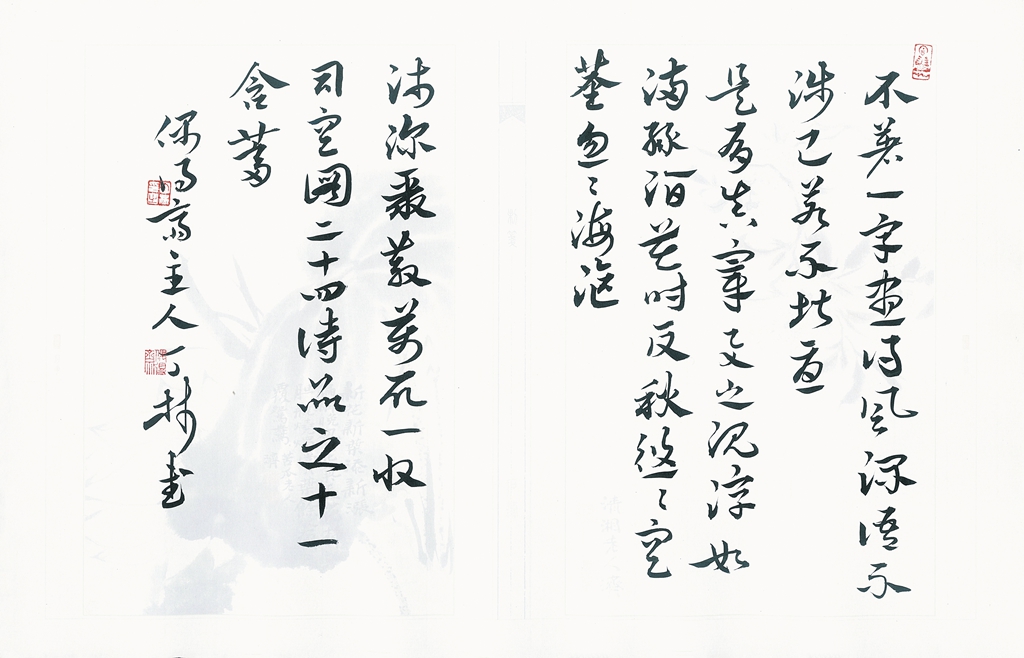 不著一字盡得風流語不
涉己若不堪憂
是有真宰與之沉浮如
滿綠酒花時反秋悠々空
塵忽々海漚
淺深聚散萬取一收
司空圖二十四詩品之十一
含蓄
得齋主人丁林書